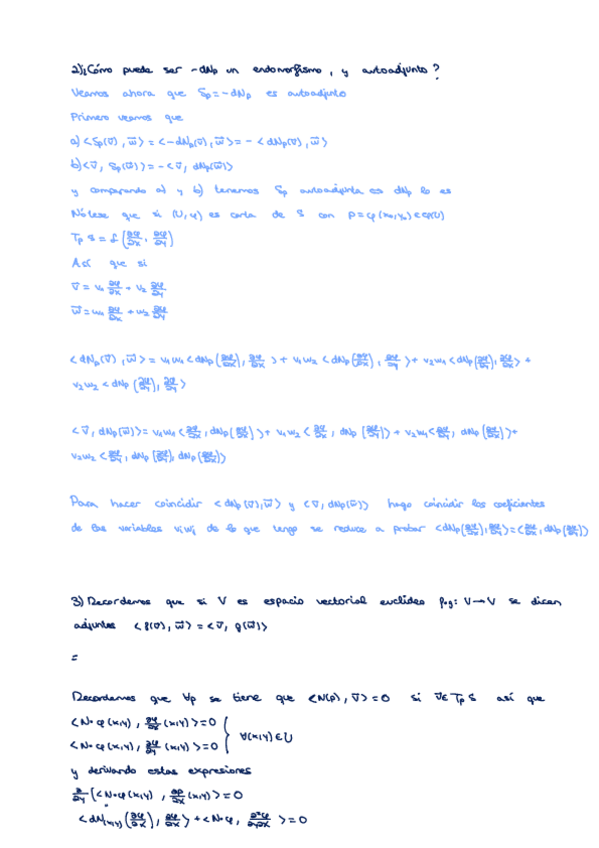 2)¿Cómo puede ser -dNp un endomorfismo, y autoadjunto?
Veamos ahora que Sp=-dNp es autoadjunto
Primero veamos que
a) <Sp(v⃗), w⃗> = <-dNp(v⃗), w⃗> = - <dNp(v⃗), w⃗>
b) <v⃗, Sp(w⃗)> = - <v⃗, dNp(w⃗)>
y comparando a) y b) tenemos Sp autoadjunta es dNp lo es
Nótese que si (U, φ) es carta de S con p=φ(x₀,y₀) ∈ φ(U)
Tp S = £ (∂φ/∂x, ∂φ/∂y)
Así que si
v⃗ = v₁ ∂φ/∂x + v₂ ∂φ/∂y
w⃗ = w₁ ∂φ/∂x + w₂ ∂φ/∂y
<dNp(v⃗), w⃗> = v₁w₁ <dNp(∂φ/∂x), ∂φ/∂x> + v₁w₂ <dNp(∂φ/∂x), ∂φ/∂y> + v₂w₁ <dNp(∂φ/∂y), ∂φ/∂x> +
v₂w₂ <dNp(∂φ/∂y), ∂φ/∂y>
<v⃗, dNp(w⃗)> = v₁w₁ <∂φ/∂x, dNp(∂φ/∂x)> + v₁w₂ <∂φ/∂x, dNp(∂φ/∂y)> + v₂w₁ <∂φ/∂y, dNp(∂φ/∂x)> +
v₂w₂ <∂φ/∂y, dNp(∂φ/∂y),
Para hacer coincidir <dNp(v⃗), w⃗> y <v⃗, dNp(w⃗)> hago coincidir los coeficientes
de las variables vᵢwⱼ de lo que luego se reduce a probar <dNp(∂φ/∂x), ∂φ/∂y> = <∂φ/∂x, dNp(∂φ/∂y)>
3) Recordemos que si V es espacio vectorial euclídeo f,g: V→V se dicen
adjuntos <f(v⃗), w⃗> = <v⃗, g(w⃗)>
=
Recordemos que ∀p se tiene que <N(p), v⃗> = 0 si v⃗ ∈ Tp S así que
<N∘φ(x,y), ∂φ/∂x (x,y)> = 0
<N∘φ(x,y), ∂φ/∂y (x,y)> = 0 } ∀(x,y) ∈ U
y derivando estas expresiones
∂/∂y (<N∘φ(x,y), ∂φ/∂x (x,y)> = 0
<dN(x,y)(∂φ/∂x), ∂φ/∂x> + <N∘φ, ∂²φ/∂y∂x> = 0